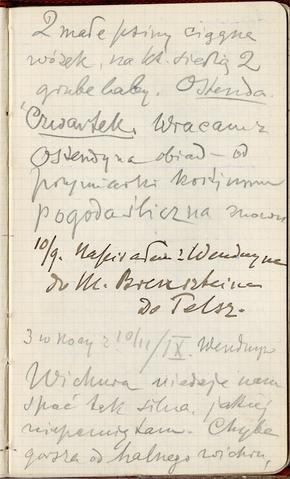 2 małe psiny ciągną
wózek, na kt. siedzą 2
grube baby. Ostenda.
Czwartek. Wracam z
Ostendy na obiad – od
pogoda śliczna znowu
10/9. Napisałem z Wenduyne
do M. Brensztejna
do Telsz.
3 w nocy z 10/11/IX. Wenduyne
Wichura nie daje nam
spać tak silna, jakiej
nie pamiętam. Chyba
gorsza od halnego wichru,